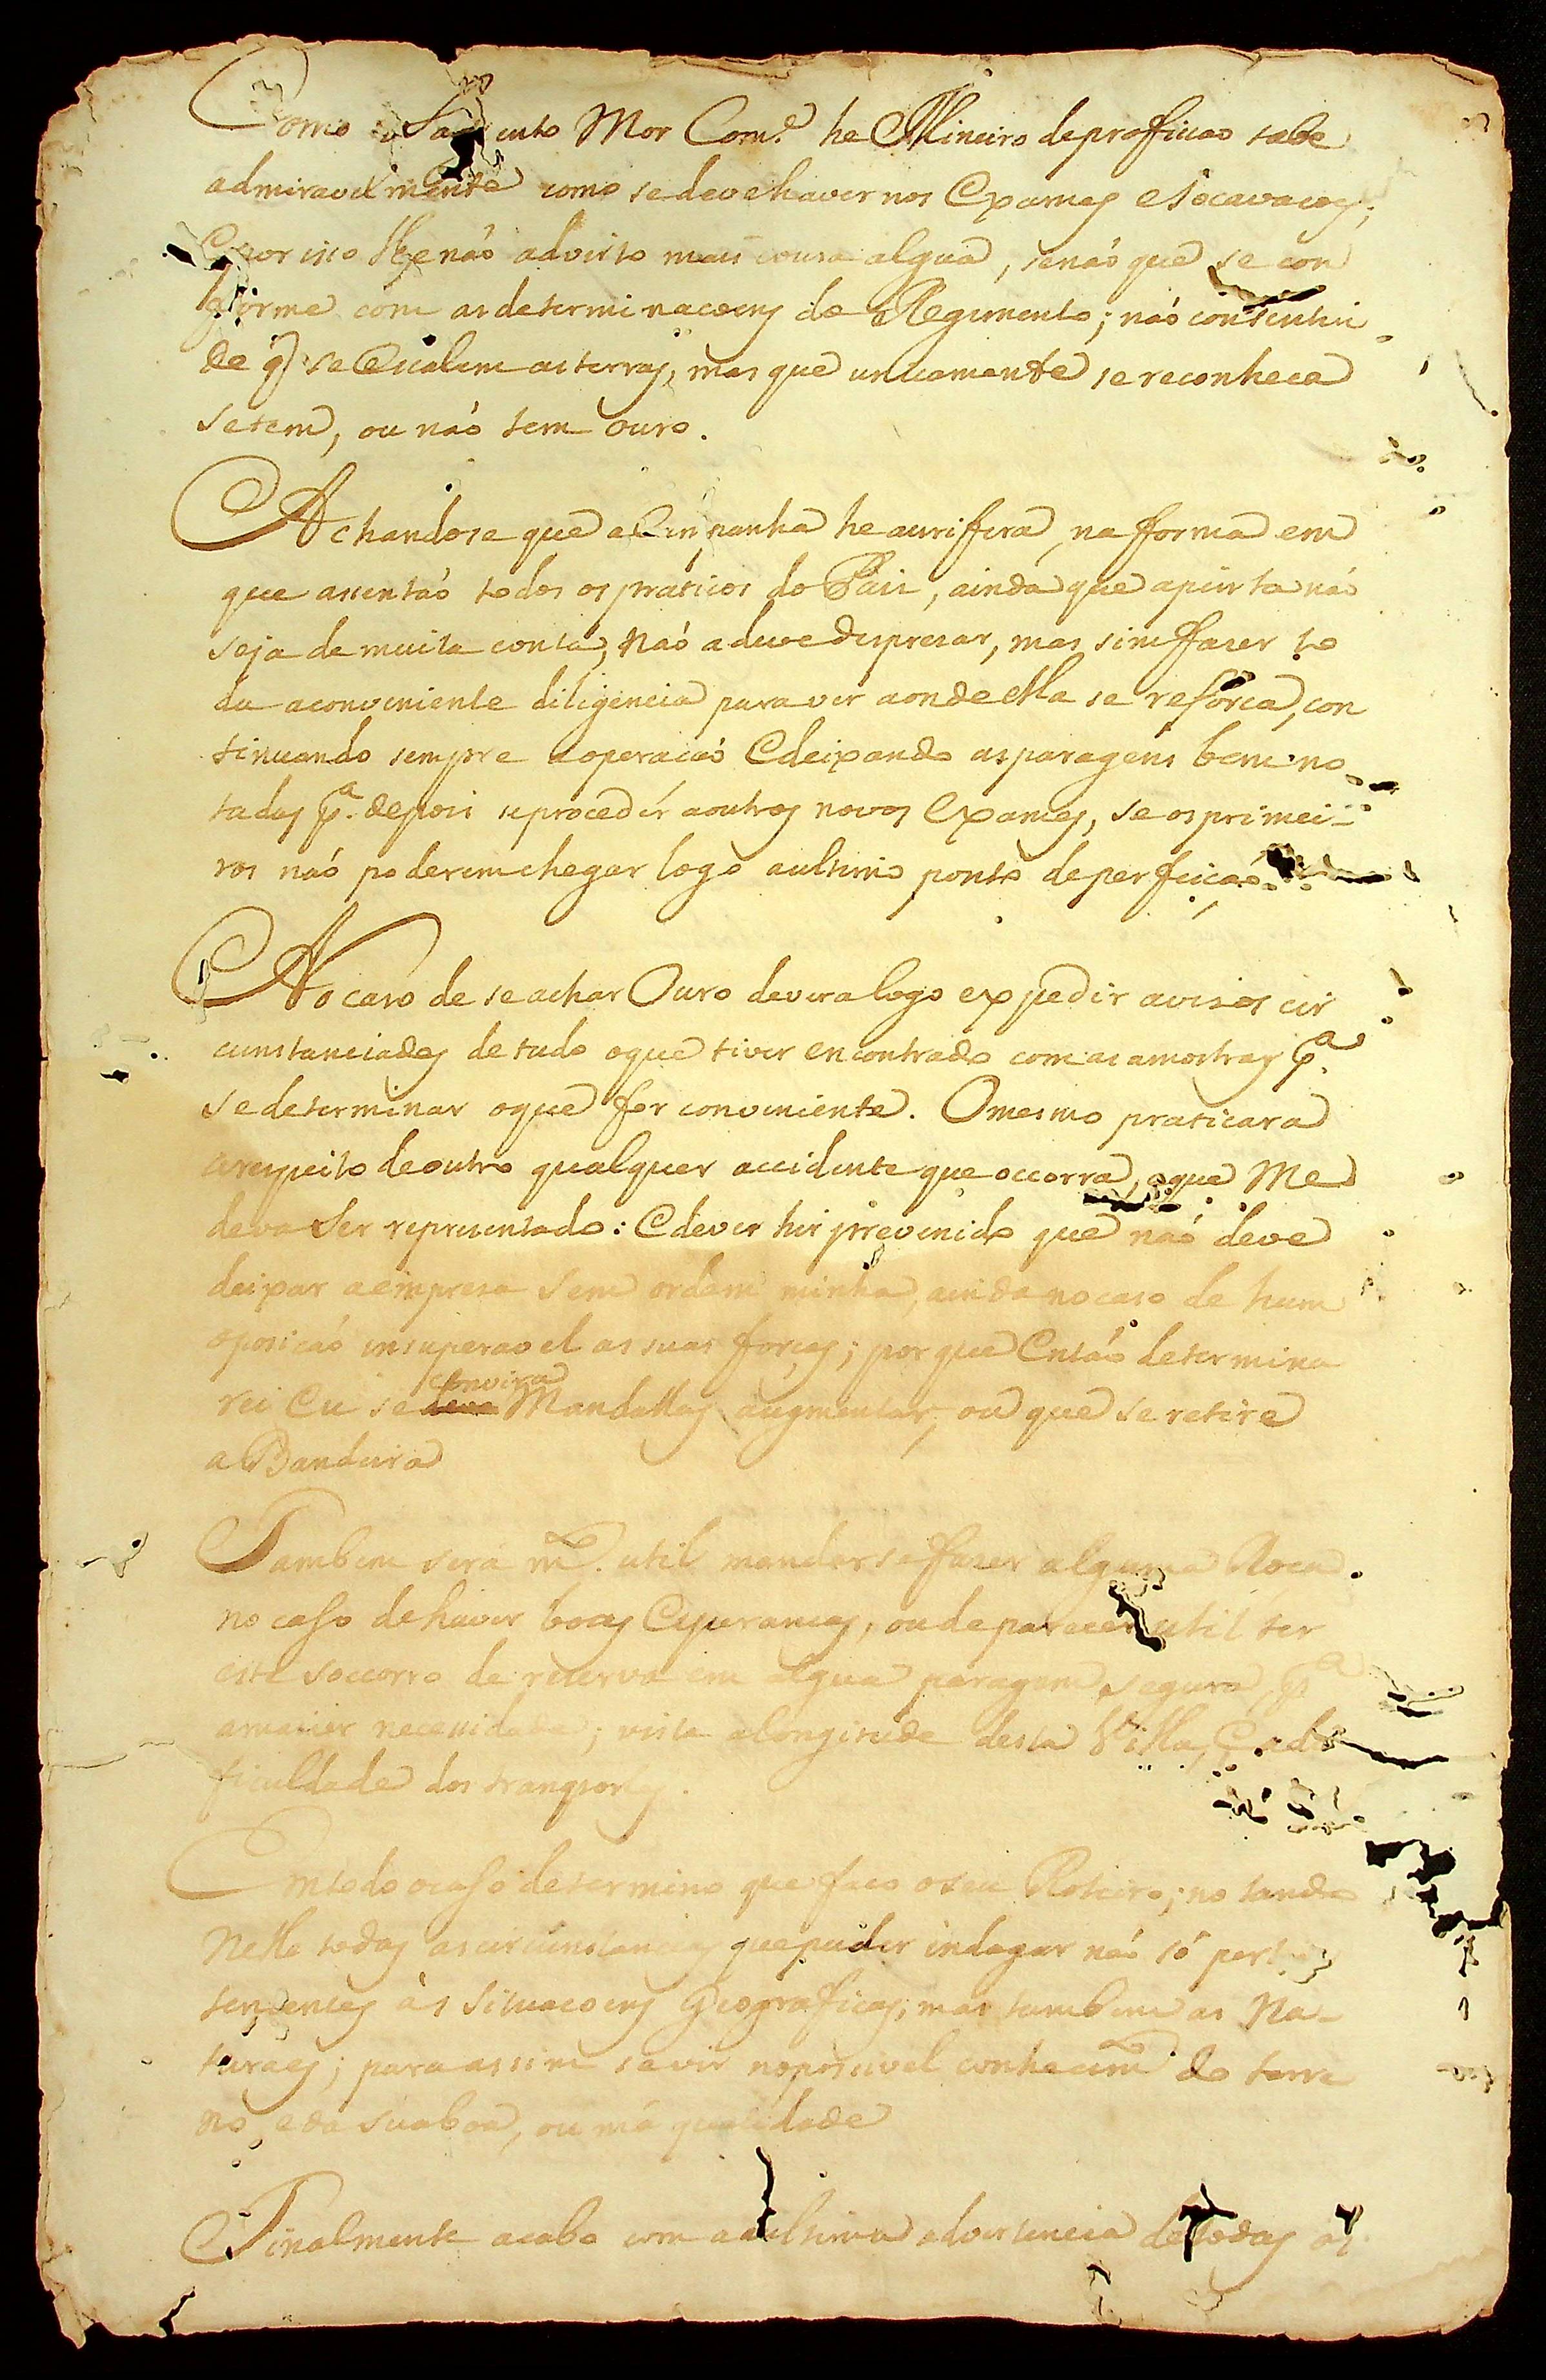 Como o Sargento Mor Com.e he Mineiro de proficao sabe
admiravelmente como se deve haver nos Exames e socavacoes;
E por isso lhe náo advirto mais cousa algua, senáo que se con
forme com as determinacoens do Regimento; náo consentin
do q̃ se Escalem as terras, mas que unicamente se reconheca
se tem, ou náo tem ouro.
Achandose que a Campanha he auriffera, na forma em
que assentáo todos os praticos do Pais, ainda que a pinta náo
seja de muita conta, náo a deve despresar, mas sim faser to
da a conveniente diligencia para ver aonde ella se reforca, con
tinuando sempre a operacáo E deixando as paragens bem no
tadas p.a depois se proceder a outros novos Exames, se os primei-
ros náo poderem chegar logo ao ultimo ponto de perfeicáo.
No caso de se achar Ouro devera logo expedir avisos cir
cunstanciados de tudo o que tiver encontrado com as amostras p.a
se determinar o que for conveniente. O mesmo praticara
a respeito de outro qualquer accidente que occorra, e que Me
deva Ser representado: E deve hir prevenido que náo deve
deixar a empresa Sem ordem minha, ainda no caso de huma
oposicáo insuperavel as suas forcas; por que Entáo determina
convira
rei Eu se deva Mandallas augmentar, ou que se retire
a Bandeira
Tambem sera m.to util mandar se faser alguma Roca
no caso de haver boas Esperancas, ou de parecer util ter
este soccorro de reserva em algua paragem segura p.a
a maior necessidade; vista a longitude desta Villa, E a di
ficuldade dos transportes.
Em todo o caso determino que faca o seu Roteiro; notando
Nelle todas as circunstancias que puder indagar náo só per
tencentes ás Situacoens Geograficas; mas tambem as Na-
turaes; para assim se vir no possivel conhecim.to do terre
no, e da sua boa, ou má qualidade
Finalmente acabo com a ultima advertencia de todas as